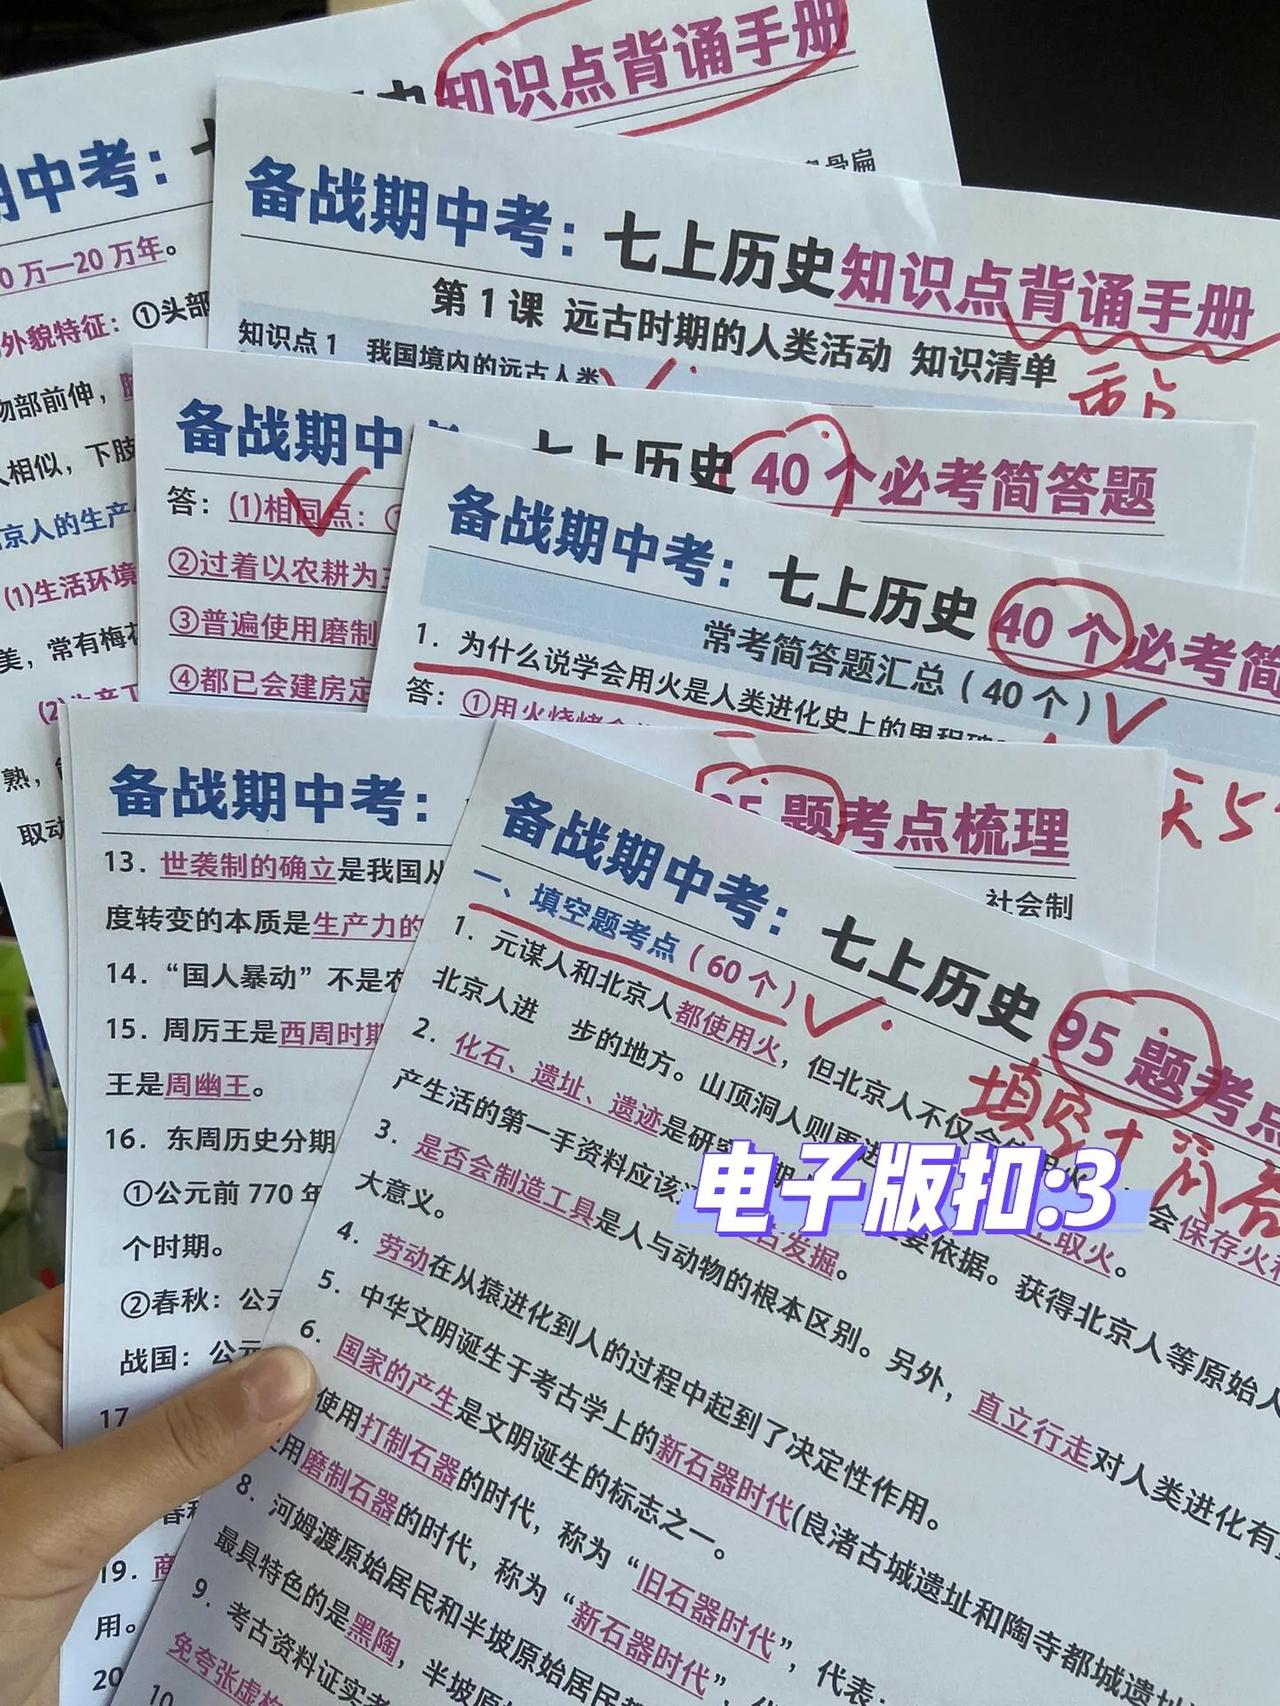 知识点背诵手册
期中考：
0万—20万年。
外貌特征：①头部
物部前伸，
人相似，下肢
京人的生产
(1)生活环境
美，常有梅花
熟，
取动
备战期中考：七上历史知识点背诵手册
第1课 远古时期的人类活动 知识清单
知识点1 我国境内的远古人类
备战期中 七上历史40个必考简答题
答：(1)相同点：①
②过着以农耕为主
③普遍使用磨制
④都已会建房定
备战期中考：七上历史40个必考简
常考简答题汇总（40个）
1．为什么说学会用火是人类进化史上的里程碑
答：①用火烧烤食
天5
备战期中考： 95题考点梳理
社会制
13．世袭制的确立是我国从
度转变的本质是生产力的
14．“国人暴动”不是农
15．周厉王是西周时期
王是周幽王。
16．东周历史分期
①公元前770年
个时期。
②春秋：公元
战国：公元
17
春秋
19．商
用。
20
备战期中考：七上历史95题考点
填空+简答
一、填空题考点（60个）
1．元谋人和北京人都使用火，但北京人不仅会使用火，会保存火种
北京人进 步的地方。山顶洞人则更进 取火。
2．化石、遗址、遗迹是研究 要依据。获得北京人等原始人
产生活的第一手资料应该 考古发掘。
3．是否会制造工具是人与动物的根本区别。另外，直立行走对人类进化有
大意义。
4．劳动在从猿进化到人的过程中起到了决定性作用。
5．中华文明诞生于考古学上的新石器时代(良渚古城遗址和陶寺都城遗址
6．国家的产生是文明诞生的标志之一。
使用打制石器的时代，称为“旧石器时代”，代表：
用磨制石器的时代，称为“新石器时代”，代
8．河姆渡原始居民和半坡原始居民
最具特色的是黑陶，半坡原
9．考古资料证实
免夸张虚构
10
电子版扣:3